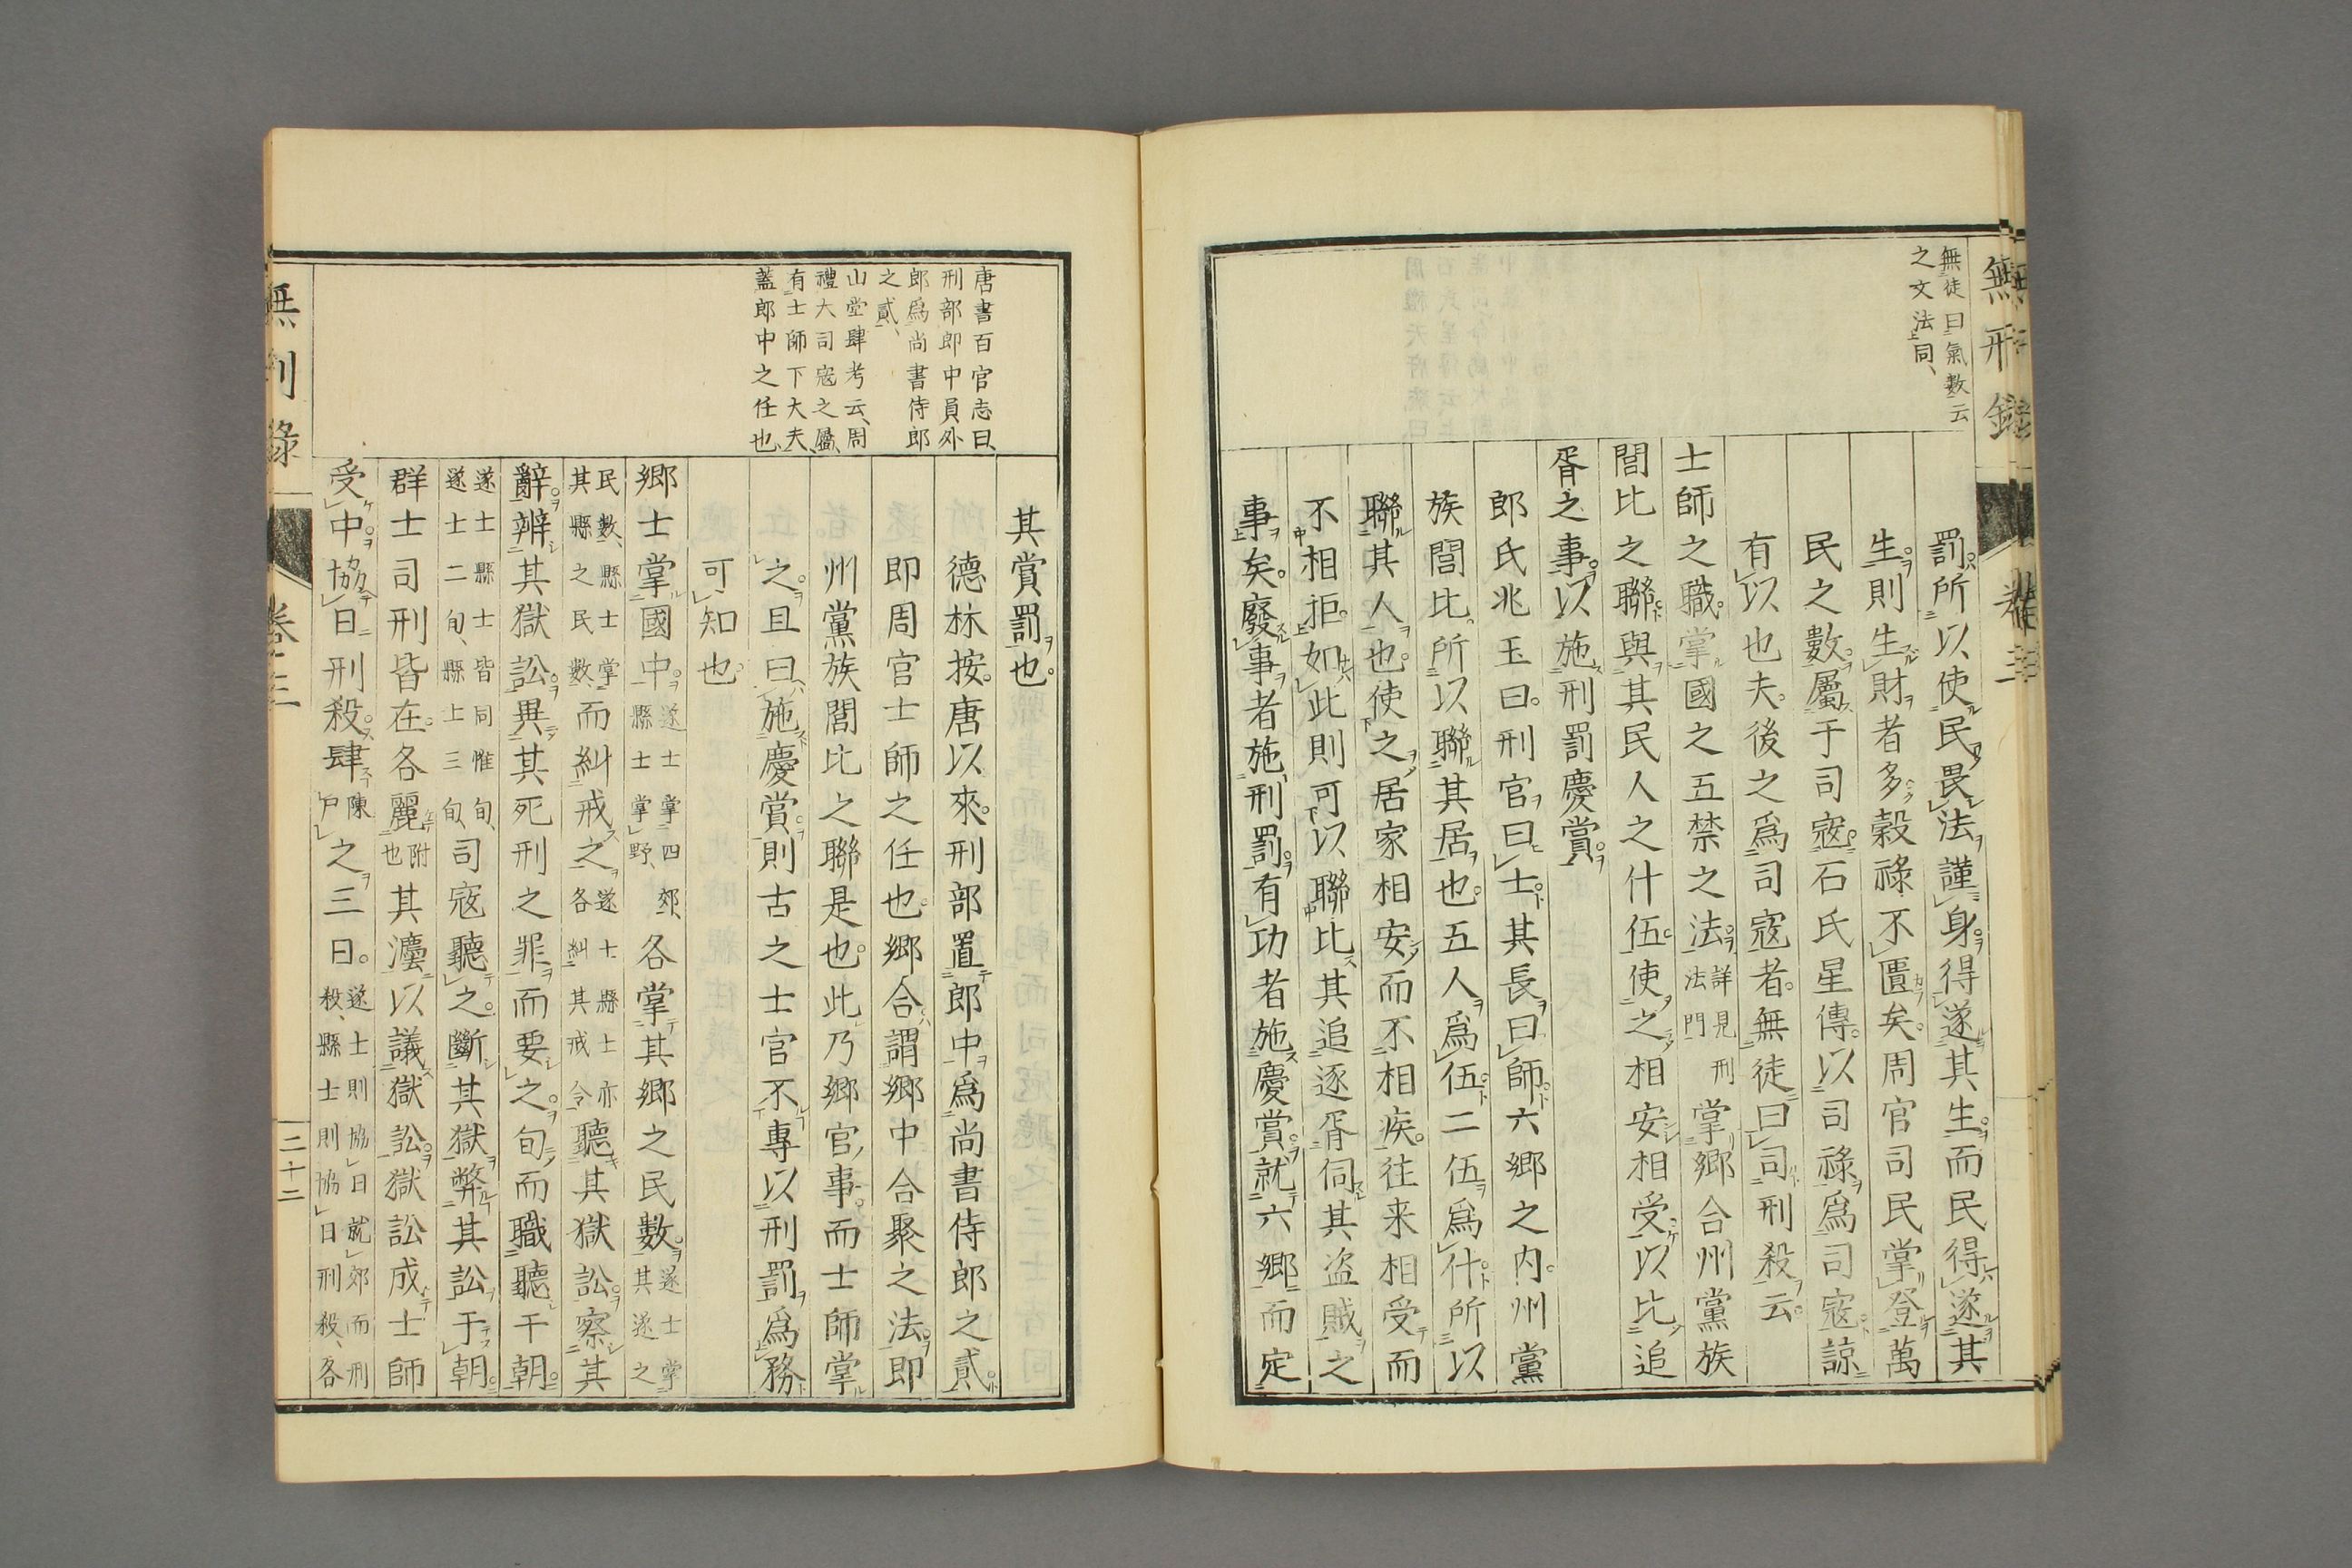 無刑録
卷三
無徒曰氣數云
之文法同、
罰所以使民畏法謹身得遂其生而民得遂其
生則生財者多穀祿不匱矣周官司民掌登萬
民之數屬于司寇石氏星傳以司祿爲司寇諒
有以也夫後之爲司寇者無徒曰司刑殺云
士師之職掌國之五禁之法詳見刑法門掌鄉合州黨族
閭比之聯與其民人之什伍使之相安相受以比追
胥之事以施刑罰慶賞
郎氏兆玉曰刑官曰士其長曰師六鄉之内州黨
族閭比所以聯其居也五人爲伍二伍爲什所以
聯其人也使之居家相安而不相疾往来相受而
不相拒如此則可以聯比其追逐胥伺其盗賊之
事矣廢事者施刑罰有功者施慶賞就六鄉而定
唐書百官志曰、
刑部郎中員外
郎爲尚書侍郎
之貳、
山堂肆考云、周
禮大司寇之屬、
有士師下大夫、
蓋郎中之任也、
其賞罰也
德林按唐以來刑部置郎中爲尚書侍郎之貳
即周官士師之任也鄉合謂鄉中合聚之法即
州黨族閭比之聯是也此乃鄉官事而士師掌
之且曰施慶賞則古之士官不專以刑罰爲務
可知也
鄉士掌國中遂士掌四郊、縣士掌野、各掌其鄉之民數遂士掌其遂之
民數、縣士掌其縣之民數、而糾戒之遂士縣士亦各糾其戒令聽其獄訟察其
辭辨其獄訟異其死刑之罪而要之旬而職聽于朝
遂士縣士皆同惟旬、遂士二旬、縣士三旬、司寇聽之斷其獄弊其訟于朝
群士司刑皆在各麗附也其灋以議獄訟獄訟成士師
受中協日刑殺肆陳尸之三日遂士則協日就郊而刑殺、縣士則協日刑殺、各
無刑録
卷三
二十二